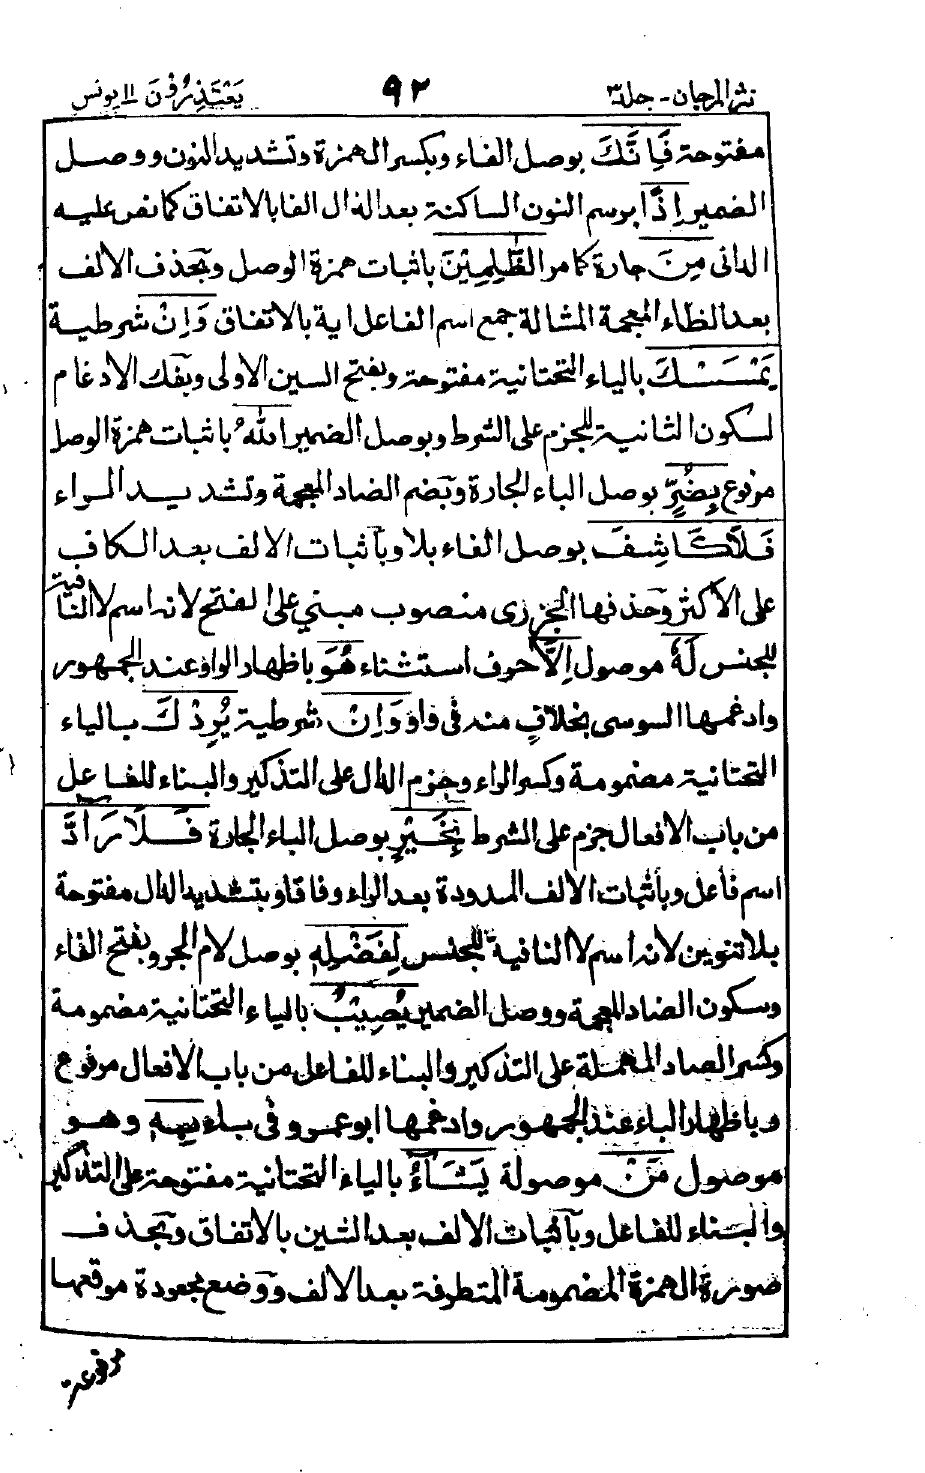 نثر المرجان - جلد ٣
٩٢
يَعْتَذِرُوْنَ ١١ يونس
مفتوحة فَاِنَّكَ بوصل الفاء وبكسر الهمزة وتشديد النون ووصل
الضمير اِذًا برسم النون الساكنة بعد الذال الفا بالاتفاق كما نص عليه
الدانى مِنَ جارة كما مر الظّٰلِمِيْنَ باثبات همزة الوصل وبحذف الالف
بعد الظاء المعجمة المشالة جمع اسم الفاعل اية بالاتفاق وَاِنْ شرطية
يَمْسَسْكَ بالياء التحتانية مفتوحة وبفتح السين الاولى وبفك الادغام
لسكون الثانية للجزم على الشرط وبوصل الضمير اللهُ باثبات همزة الوصل
مرفوع بِضُرٍّ بوصل الباء الجارة وبضم الضاد المعجمة وتشديد الراء
فَلَا كَاشِفَ بوصل الفاء بلا وبآثبات الالف بعد الكاف
على الأكثر وحذفها الجزرى منصوب مبني على الفتح لانه اسم لا النافية
للجنس لَهٗ موصول اِلَّا حرف استثناء هُوَ باظهار الواو عند الجمهور
وادغمها السوسى بخلاف منه فى واو وَاِنْ شرطية يُرِدْكَ بالياء
التحتانية مضمومة وكسر الراء وجزم الدال على التذكير والبناء للفاعل
من باب الافعال جزم على الشرط بِخَيْرٍ بوصل الباء الجارة فَلَا رَآدَّ
اسم فاعل وبأثبات الالف الممدودة بعد الراء وفاقا وبتشديد الدال مفتوحة
بلا تنوين لانه اسم لا النافية للجنس لِفَضْلِهٖ بوصل لام الجر وبفتح الفاء
وسكون الضاد المعجمة ووصل الضمير يُصِيْبُ بالياء التحتانية مضمومة
وكسر الصاد المهملة على التذكير والبناء للفاعل من باب الافعال مرفوع
وباظهار الباء عند الجمهور وادغمها ابو عمرو فى باء بِهٖ وهو
موصول مَنْ موصولة يَشَآءُ بالياء التحتانية مفتوحة على التذكير
والبناء للفاعل وبآثبات الالف بعد الشين بالاتفاق وبحذف
صورة الهمزة المضمومة المتطرفة بعد الالف ووضع مجعودة موقعها
مرفوعة